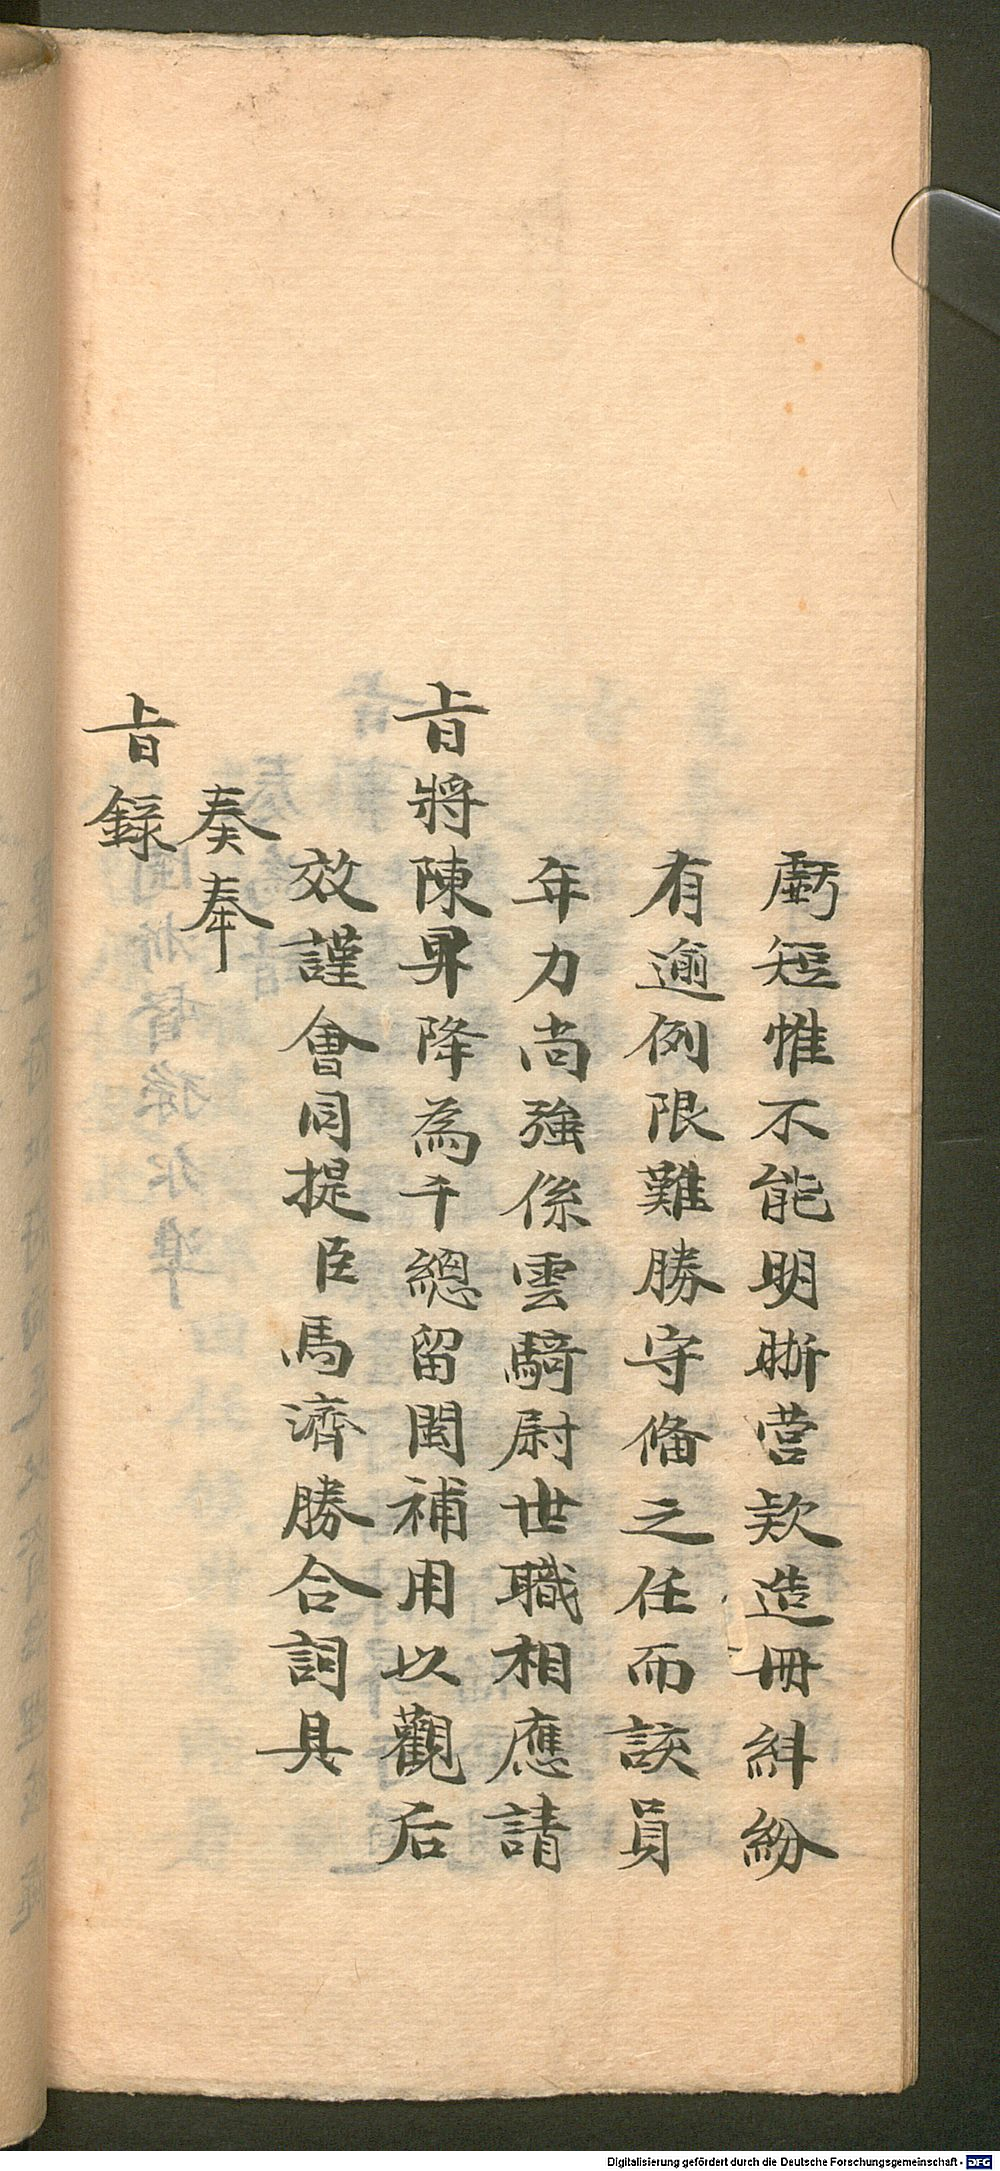 虧短惟不能明晰営欵造冊糾紛
有逾例限難勝守俻之任而該員
年力尚強係雲騎尉世職相應請
旨將陳昇降為千總留閩補用以觀后
效謹會同提臣馬濟勝合詞具
奏奉
旨録
Digitalisierung gefördert durch die Deutsche Forschungsgemeinschaft - DFG